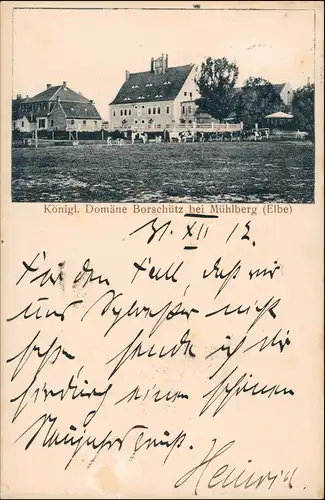 Königl. Domäne Borschütz bei Mühlberg (Elbe)
31. XII 12.
Für den Fall, daß wir
uns Sylvester nicht
sehn, sende ich dir
hierdurch einen schönen
Neujahrsgruß.
Heinrich.